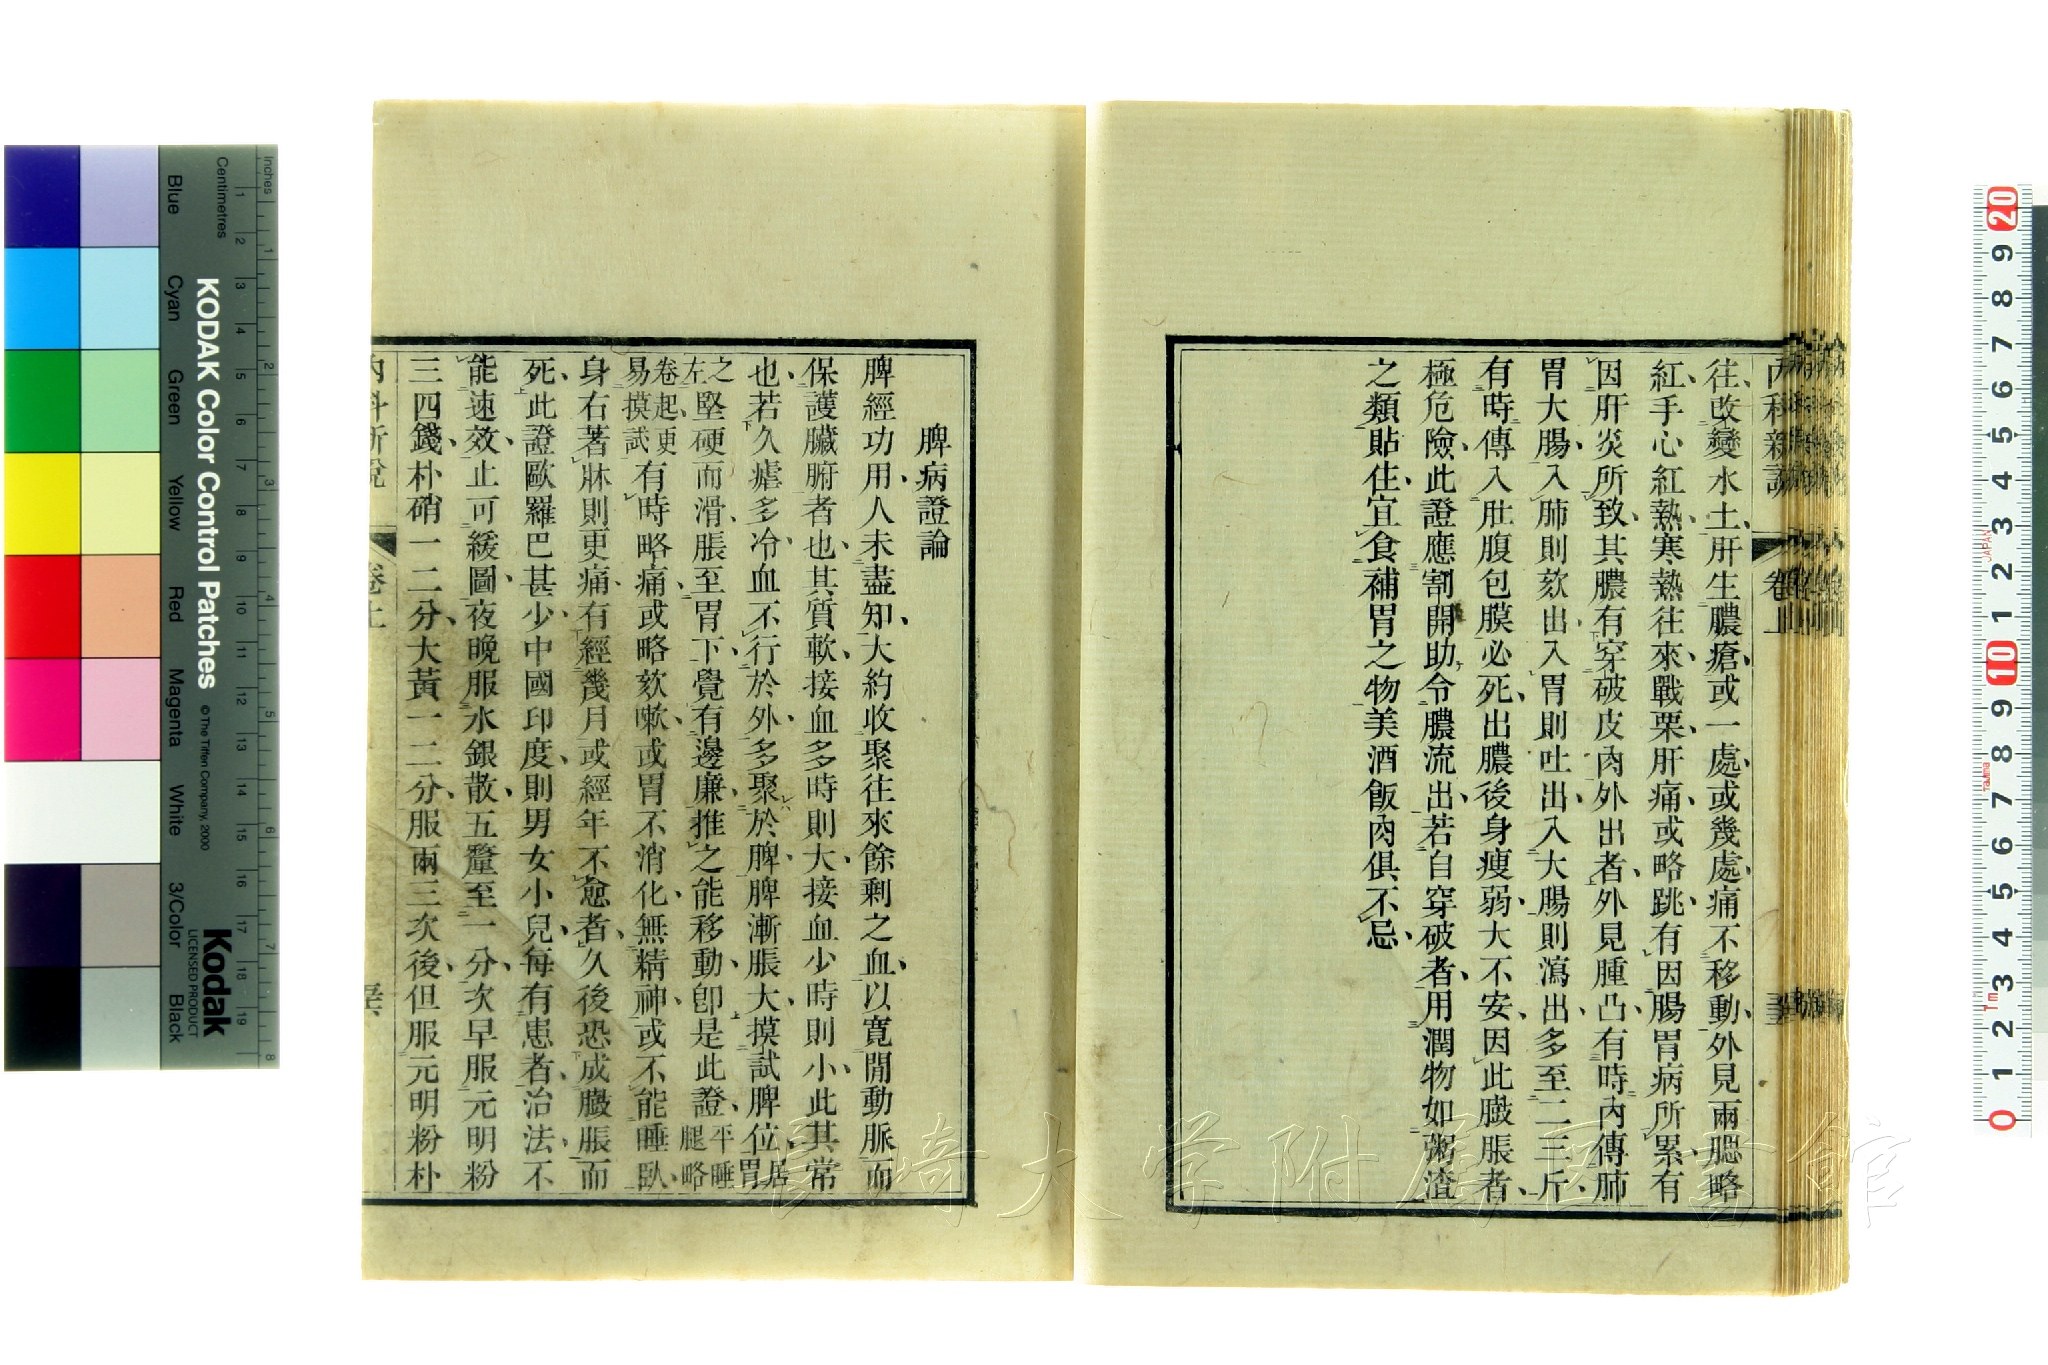 內科新說 卷上
往改變水土、肝生膿瘡、或一處、或幾處、痛不移動、外見兩腮略
紅、手心紅熱、寒熱往來、戰栗、肝痛、或略跳、有因腸胃病所累、有
因肝炎所致、其膿有穿破皮肉外出者、外見腫凸、有時內傳肺
胃大腸、入肺則欬出、入胃則吐出、入大腸則瀉出、多至二三斤、
有時傳入肚腹包膜必死、出膿後身瘦弱、大不安、因此臌脹者、
極危險、此證應割開助令膿流出、若自穿破者、用潤物如粥渣
之類貼住、宜食補胃之物、美酒飯肉俱不忌、
脾病證論
脾經功用、人未盡知、大約收聚往來餘剩之血、以寬閒動脈、而
保護臟腑者也、其質軟、接血多時則大、接血少時則小、此其常
也、若久瘧多冷、血不行於外、多聚於脾、脾漸脹大、摸試脾位、居胃
之左堅硬而滑、脹至胃下、覺有邊廉、推之能移動、卽是此證、平睡腿略
卷起、更易摸試有時略痛、或略欬嗽、或胃不消化、無精神、或不能睡臥、
身右著牀則更痛、有經幾月或經年不愈者、久後恐成臌脹而
死、此證歐羅巴甚少、中國印度、則男女小兒、每有患者、治法不
能速效、止可緩圖、夜晚服水銀散、五釐至一分、次早服元明粉
三四錢、朴硝一二分、大黃一二分、服兩三次後、但服元明粉朴
內科新說 卷上
KODAK Color Control Patches
© The Tiffen Company, 2000
Kodak
LICENSED PRODUCT
Blue
Cyan
Green
Yellow
Red
Magenta
White
3/Color
Black
Inches
Centimetres
1 2 3 4 5 6 7 8 9 10 11 12 13 14 15 16 17 18 19
1 2 3 4 5 6 7 8
20 9 8 7 6 5 4 3 2 1 10 9 8 7 6 5 4 3 2 1 0
長崎大学附属図書館